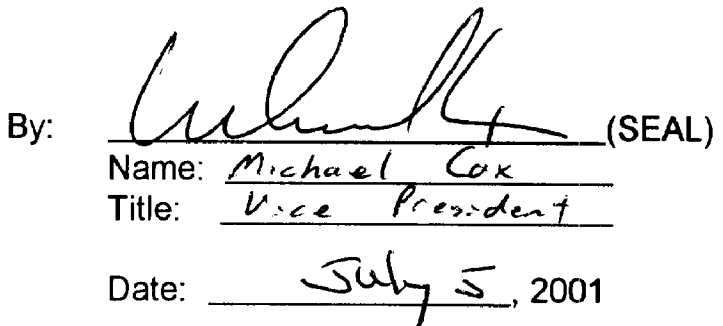 By: (SEAL)
Name: Michael Cox
Title: Vice President
Date: July 5, 2001